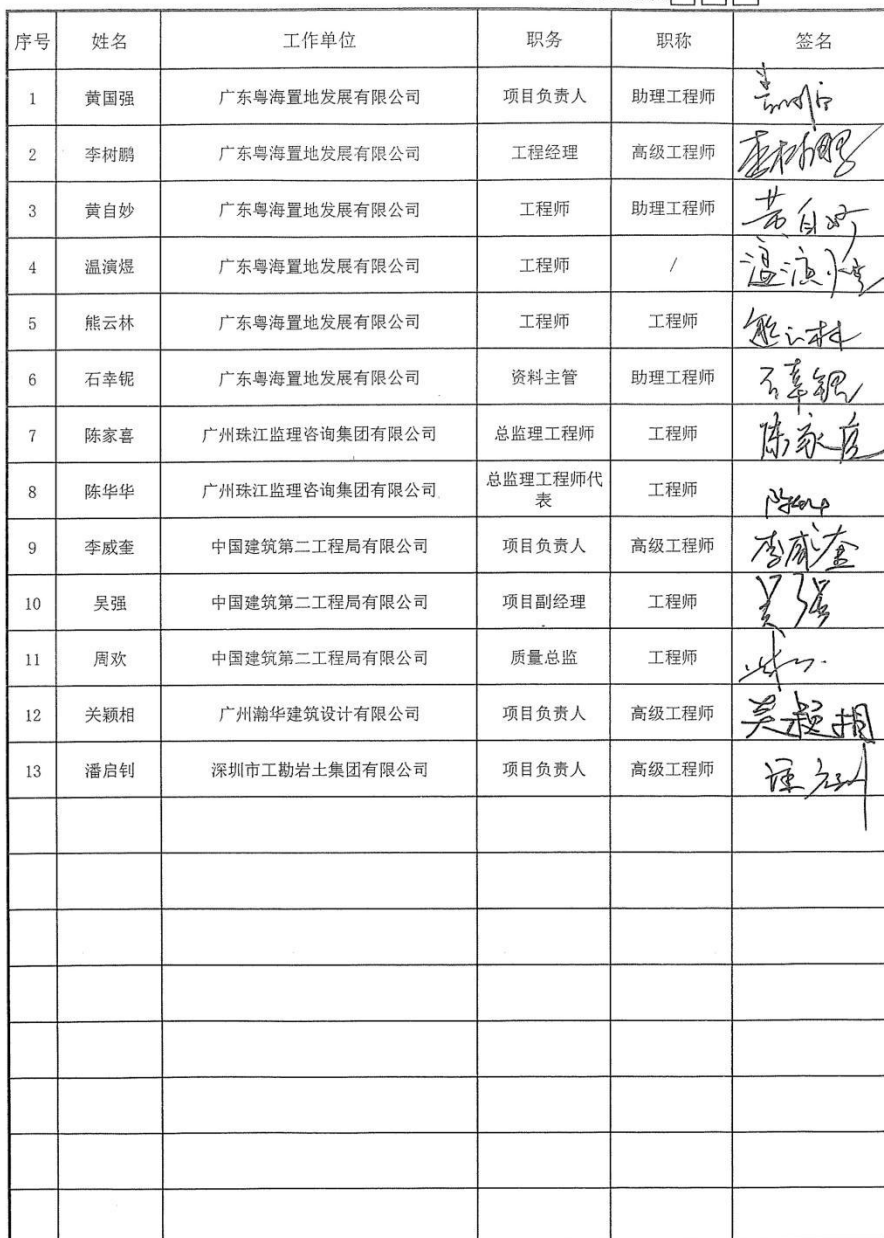 序号 姓名 工作单位 职务 职称 签名
1 黄国强 广东粤海置地发展有限公司 项目负责人 助理工程师
2 李树鹏 广东粤海置地发展有限公司 工程经理 高级工程师 李树鹏
3 黄自妙 广东粤海置地发展有限公司 工程师 助理工程师 黄自妙
4 温演煜 广东粤海置地发展有限公司 工程师 / 温演煜
5 熊云林 广东粤海置地发展有限公司 工程师 工程师 熊云林
6 石幸铌 广东粤海置地发展有限公司 资料主管 助理工程师 石幸铌
7 陈家喜 广州珠江监理咨询集团有限公司 总监理工程师 工程师 陈家喜
8 陈华华 广州珠江监理咨询集团有限公司 总监理工程师代
表 工程师
9 李威奎 中国建筑第二工程局有限公司 项目负责人 高级工程师 李威奎
10 吴强 中国建筑第二工程局有限公司 项目副经理 工程师 吴强
11 周欢 中国建筑第二工程局有限公司 质量总监 工程师
12 关颖相 广州瀚华建筑设计有限公司 项目负责人 高级工程师 关颖相
13 潘启钊 深圳市工勘岩土集团有限公司 项目负责人 高级工程师